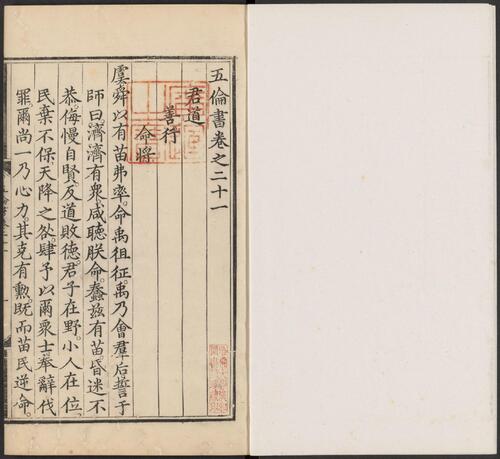 五倫書卷之二十一
君道
善行
命將
虞舜以有苗弗率。命禹徂征。禹乃會羣后。誓于
師曰。濟濟有衆。咸聽朕命。蠢兹有苗。昏迷不
恭。侮慢自賢。反道敗德。君子在野。小人在位。
民棄不保。天降之咎。肆予以爾衆士。奉辭伐
罪。爾尚一乃心力。其克有勲。既而苗民逆命。